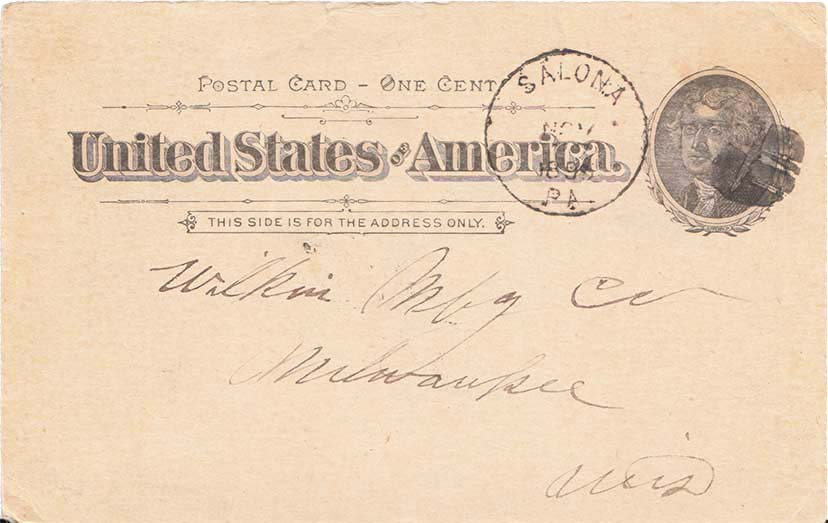 POSTAL CARD - ONE CENT
United States OF America.
THIS SIDE IS FOR THE ADDRESS ONLY.
SALONA
NOV
PA
Wilkin Mfg Co
Milwaukee
Wis